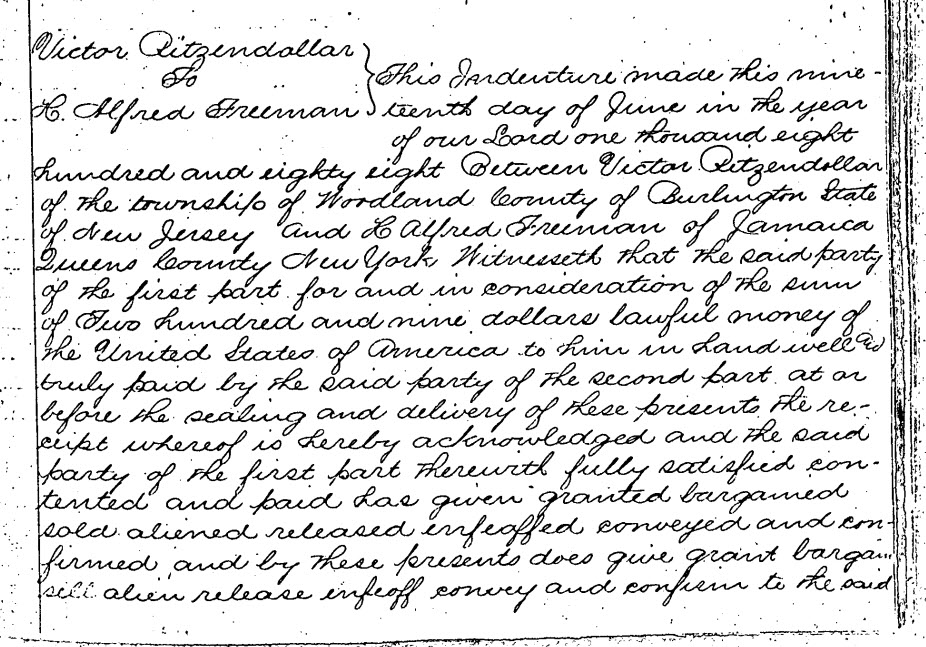 Victor Ritzendollar
To
H. Alfred Freeman
This Indenture made this nine-
teenth day of June in the year
of our Lord one thousand eight
hundred and eighty eight Between Victor Ritzendollar
of the township of Woodland County of Burlington State
of New Jersey and H Alfred Freeman of Jamaica
Queens County New York Witnesseth that the said party
of the first part for and in consideration of the sum
of Two hundred and nine dollars lawful money of
the United States of America to him in hand well and
truly paid by the said party of the second part at or
before the sealing and delivery of these presents the re-
ceipt whereof is hereby acknowledged and the said
party of the first part therewith fully satisfied con-
tented and paid has given granted bargained
sold aliened released enfeoffed conveyed and con-
firmed and by these presents does give grant bargain
sell alien release enfeoff convey and confirm to the said